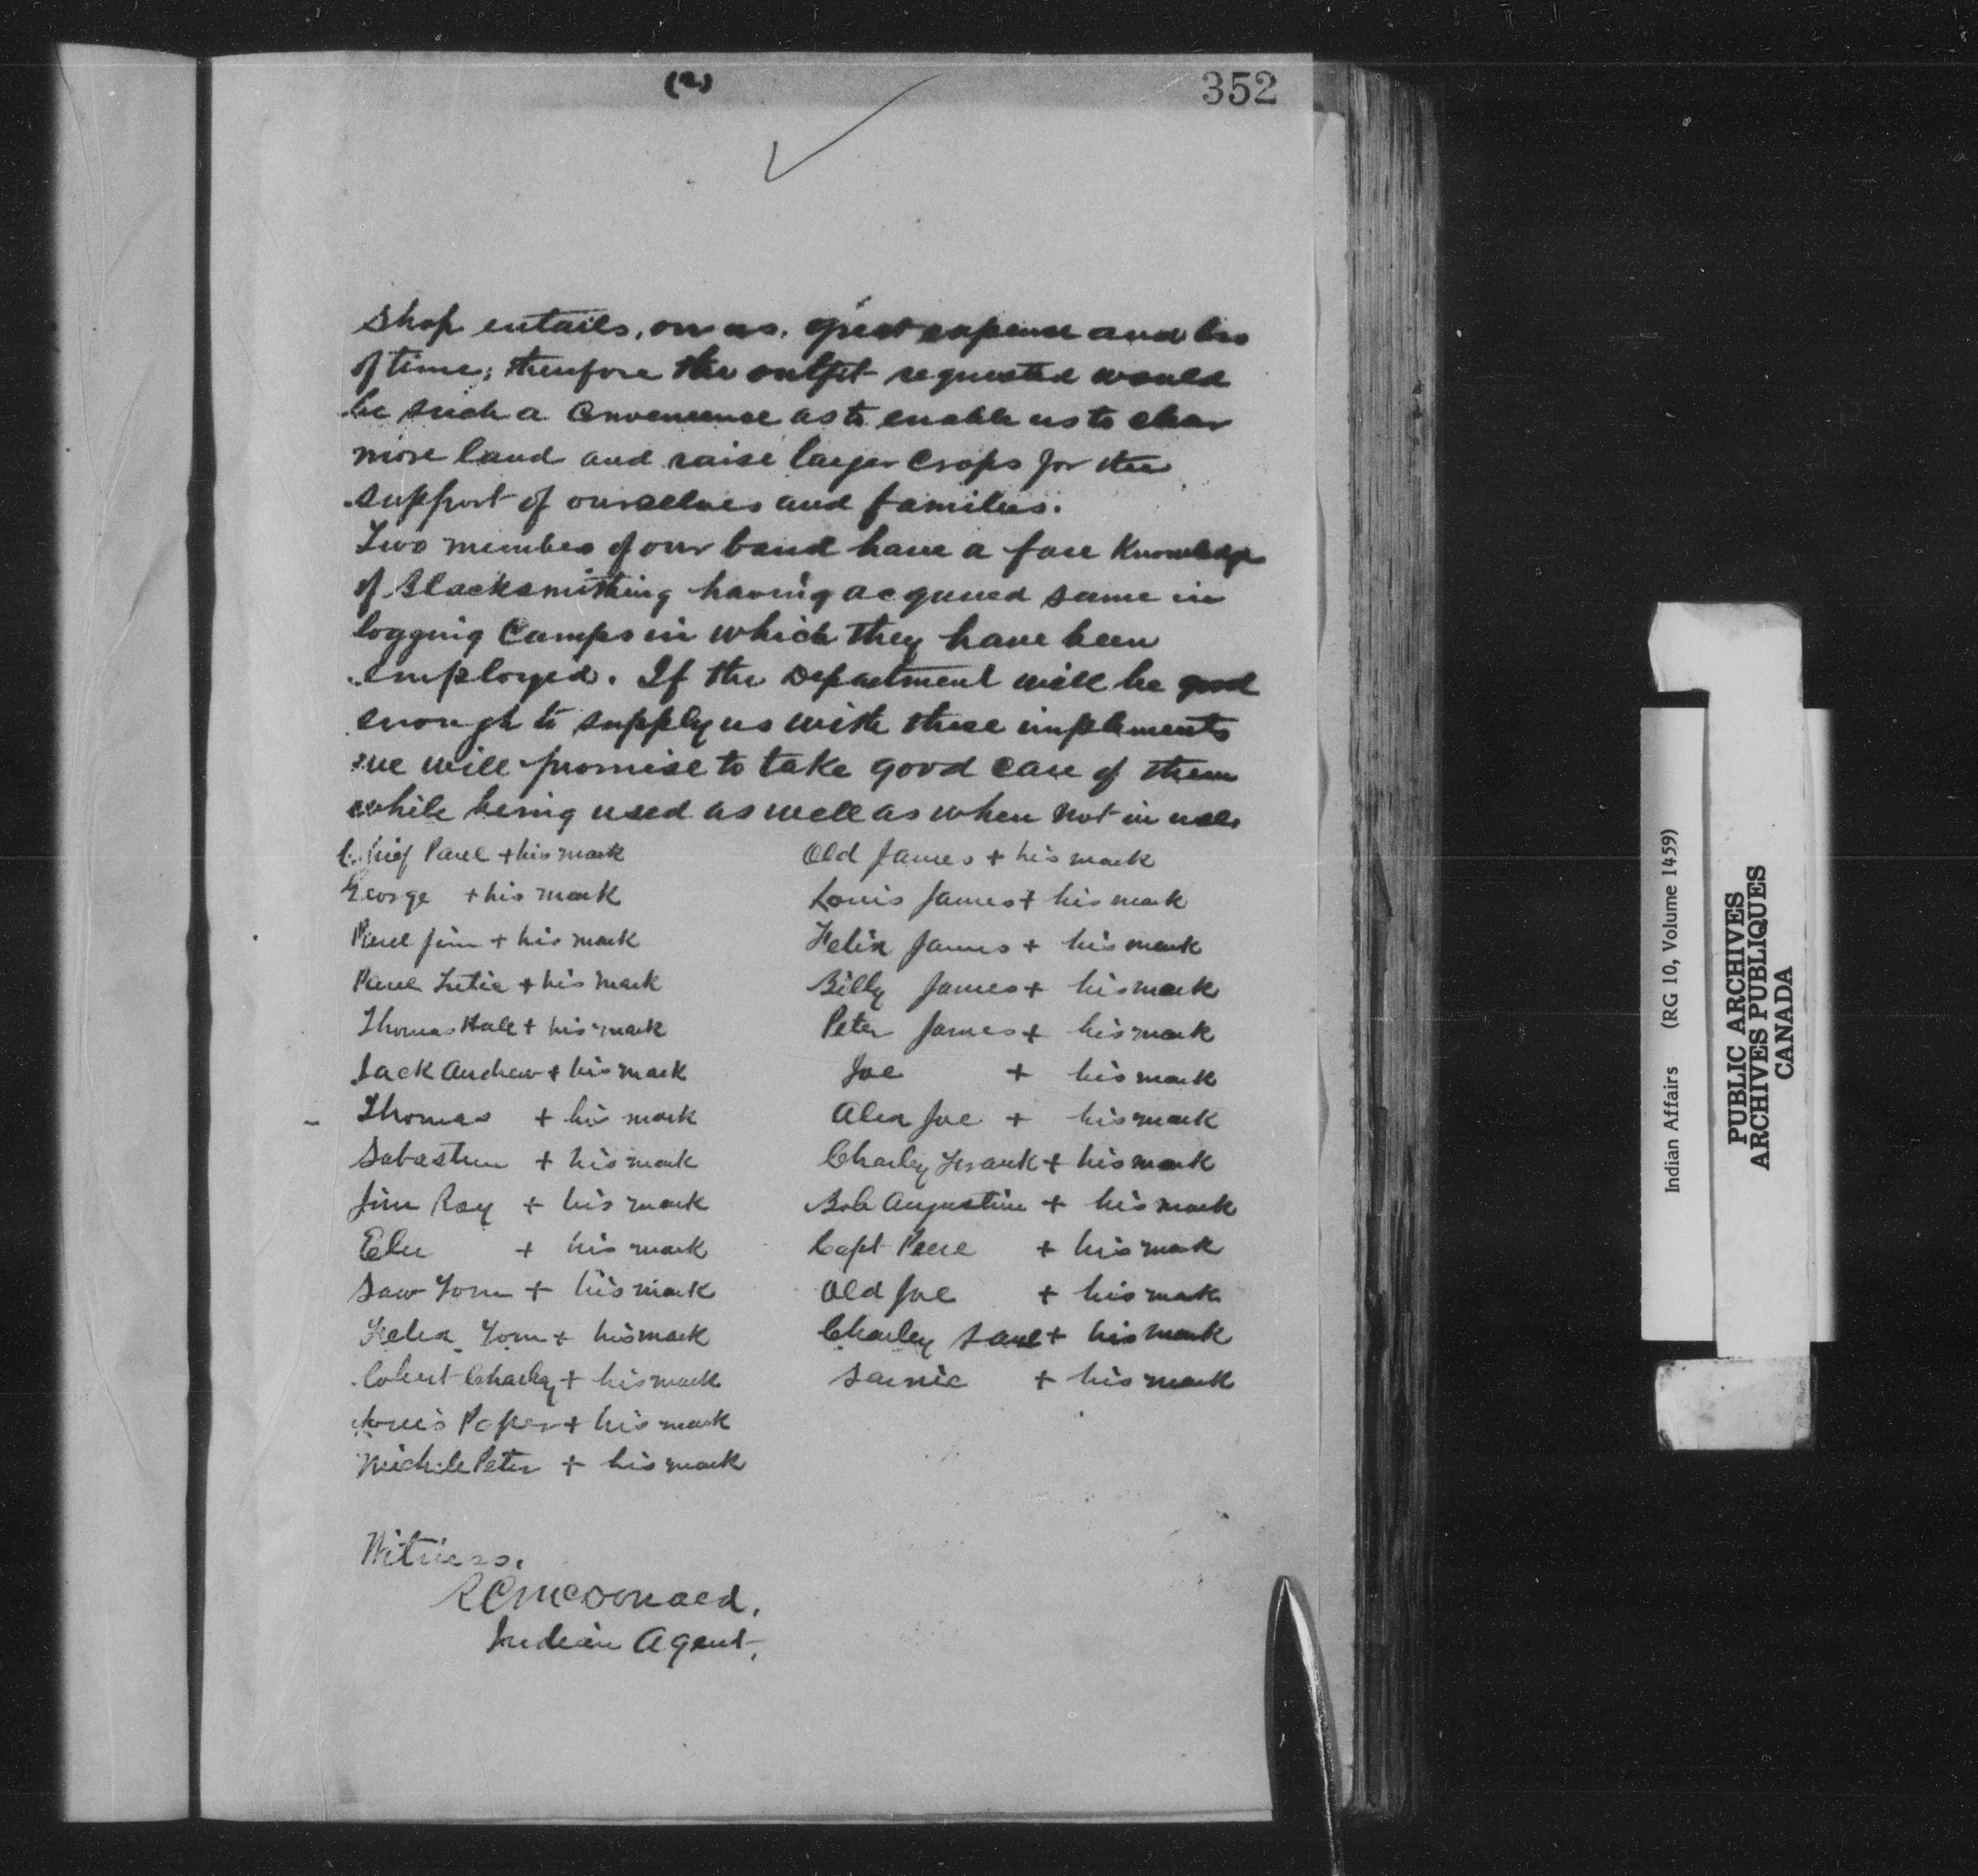 (2)
352
shop entails, on us, great expense and loss
of time; therefore the outfit requested would
be such a convenience as to enable us to clear
more land and raise larger crops for the
support of ourselves and families.
Two members of our band have a fair knowledge
of Blacksmithing having acquired same in
logging Camps in which they have been
employed. If the Department will be good
enough to supply us with these implements
we will promise to take good care of them
while being used as well as when not in use.
Chief Paul + his mark
George + his mark
Paul Jim + his mark
Paul + his mark
Thomas + his mark
Jack Andrew + his mark
Thomas + his mark
Sabastien + his mark
Jim Roy + his mark
+ his mark
Tom + his mark
Felix Tom + his mark
Charley + his mark
Louis + his mark
Michele Peter + his mark
Old James + his mark
Louis James + his mark
Felix James + his mark
Billy James + his mark
Peter James + his mark
Joe + his mark
Alex Joe + his mark
Charley Frank + his mark
Bob Augustine + his mark
Capt + his mark
Old Joe + his mark
Charley + his mark
+ his mark
Witness.
R C McDonald,
Indian Agent,
Indian Affairs (RG 10, Volume 1459)
PUBLIC ARCHIVES
ARCHIVES PUBLIQUES
CANADA